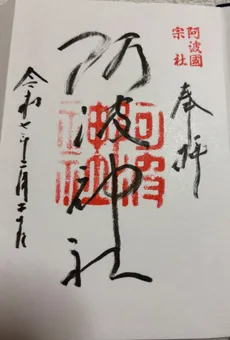 阿波國
宗社
奉拝
阿波神社
阿波
神社
令和七年三月二十九日